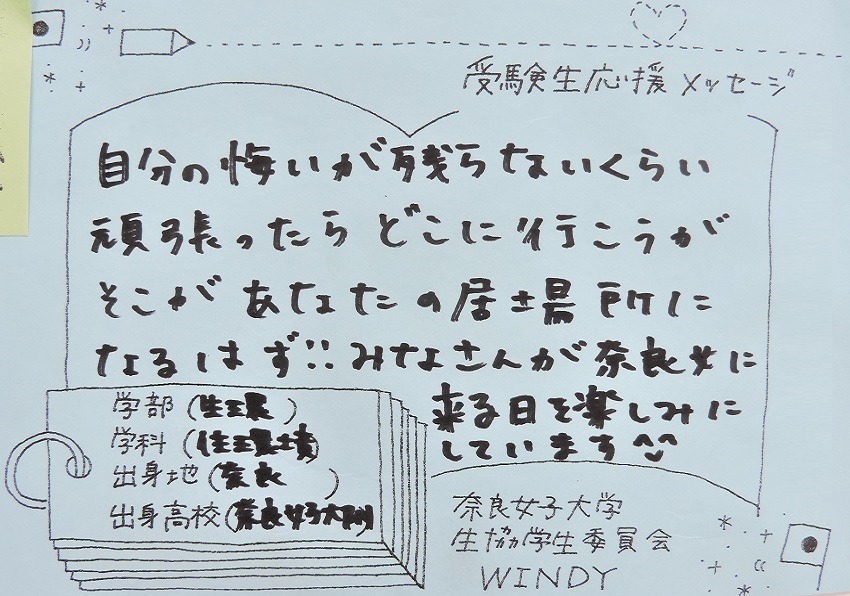 受験生応援メッセージ
自分の悔いが残らないくらい
頑張ったら どこに行こうが
そこが あなたの居場所に
なるはず!! みなさんが奈良女に
来る日を楽しみに
しています^^
学部 (生環)
学科 (住環境)
出身地 (奈良)
出身高校 (奈良女子大附)
奈良女子大学
生協学生委員会
WINDY